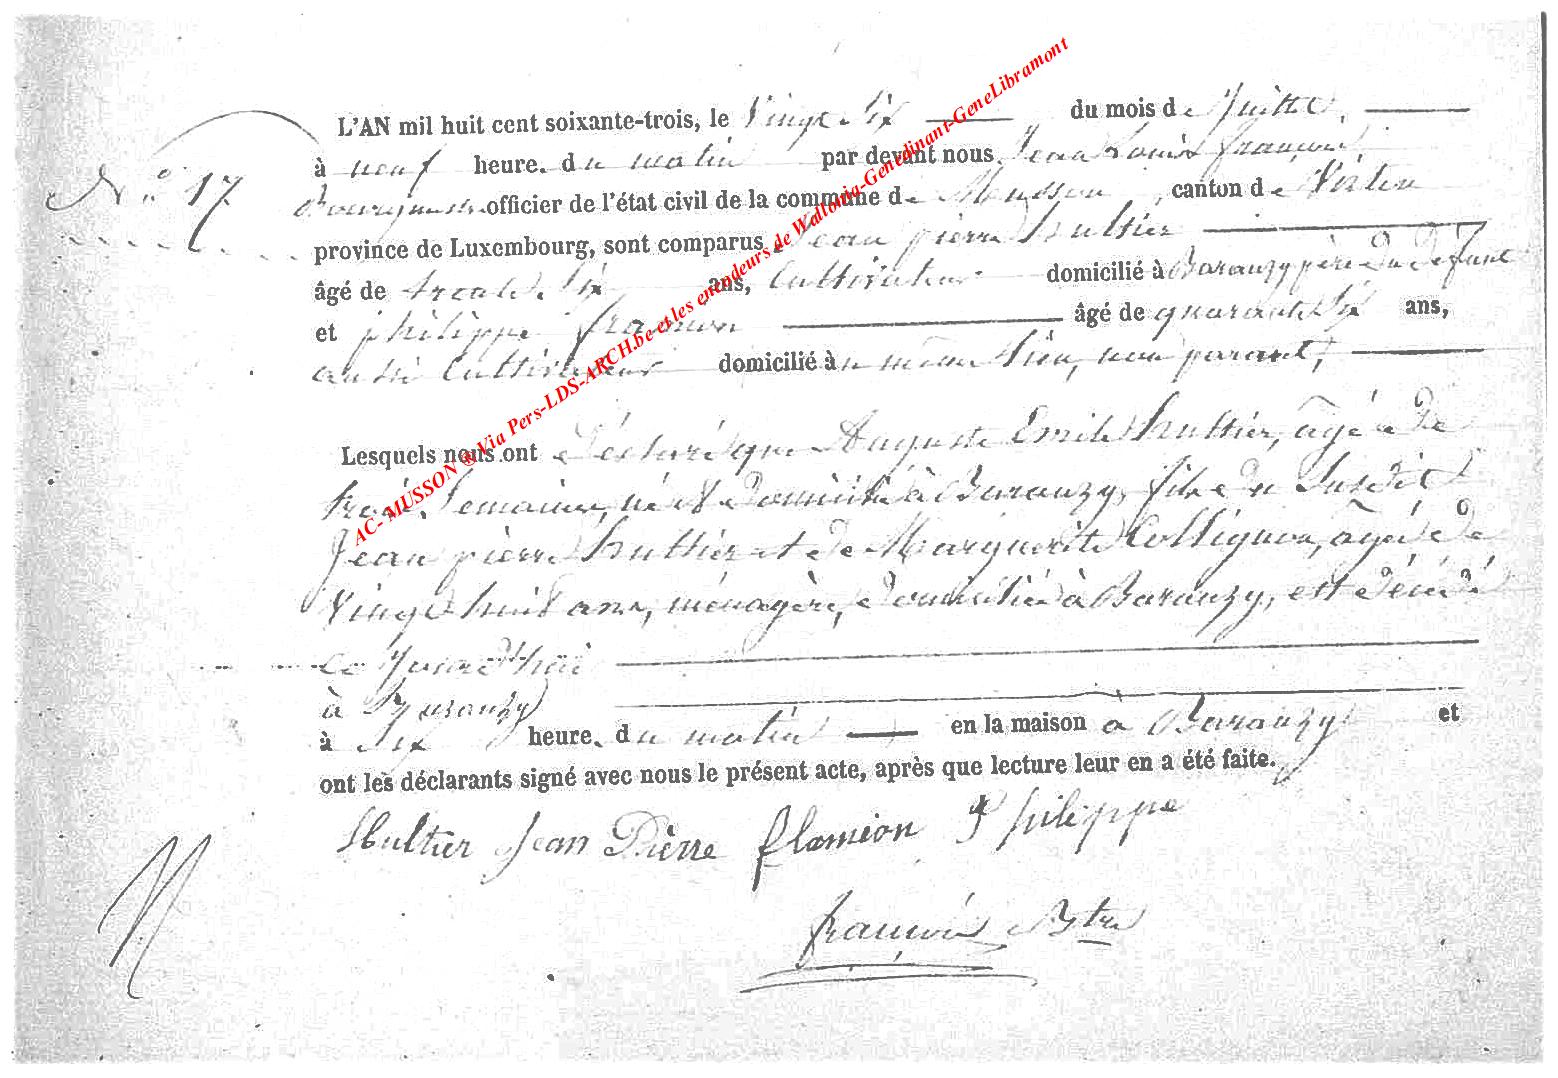 L'AN mil huit cent soixante-trois, le Vingt Six du mois de Juillet,
à neuf heure. du matin par devant nous Jean Louis françois
N.° 17
Bourgmestre officier de l'état civil de la commune de Musson, canton de Virton
province de Luxembourg, sont comparus Jean pierre hultier
âgé de trente Six ans, Cultivateur domicilié à Baranzy père du défunt
et philippe flamion âgé de quarante Six ans,
aussi Cultivateur domicilié à même lieu, non parent,
Lesquels nous ont déclaré que Auguste Emile hultier, âgé de
trois Semaines, né et domicilié à Baranzy, fils du Susdit
Jean pierre hultier et de Marguerite Collignon, agée de
Vingt huit ans, ménagère, domiciliée à Baranzy, est décédé
ce Jourd'hui
à Baranzy
à Six heure. du matin en la maison à Baranzy et
ont les déclarants signé avec nous le présent acte, après que lecture leur en a été faite.
Hultier Jean Pièrre flamion Philippe
françois Bgtre
AC- MUSSON ® Via Pers-LDS-ARCH.be et les encodeurs de Wallonia-Genedinant-GeneLibramont